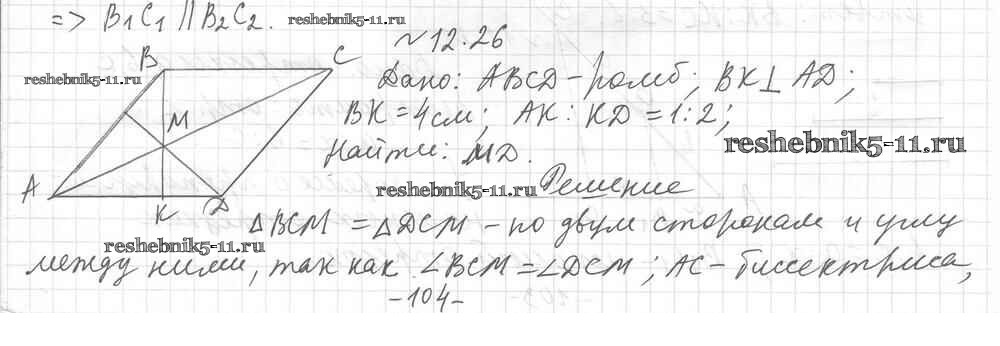 => B₁C₁ || B₂C₂.
reshebnik5-11.ru
№12.26
B
C
reshebnik5-11.ru
Дано: ABCD - ромб; BK⊥AD;
M
BK=4см; AK:KD=1:2;
reshebnik5-11.ru
Найти: MD.
A
K
D
reshebnik5-11.ru
Решение
△BCM = △DCM - по двум сторонам и углу
reshebnik5-11.ru
между ними, так как ∠BCM=∠DCM; AC- биссектриса,
-104-